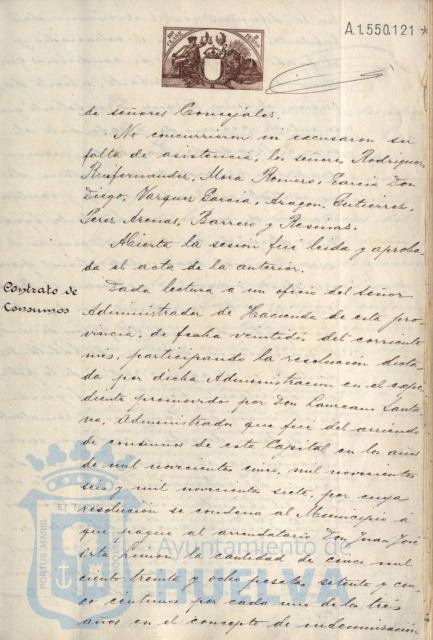 A.1.550.121 *
de señores Concejales.
No concurrieron ni escusaron su
falta de asistencia, los señores Rodriguez
Ruifernandez, Mora Romero, Garcia Don
Diego, Vazquez Garcia, Aragon, Gutierrez,
Perez Arenas, Barrero y Resinas.
Abierta la sesión fué leida y aproba-
da el acta de la anterior.
Contrato de
Consumos
Dada lectura á un oficio del señor
Administrador de Hacienda de esta pro-
vincia, de fecha veintidós del corriente
mes, participando la resolución dicta-
da por dicha Administracion en el espe-
diente promovido por Don Laureano Santa-
na, Administrador que fué del arriendo
de consumos de esta Capital en los años
de mil novecientos cinco, mil novecientos
seis y mil novecientos siete, por cuya
resolución se condena al Municipio á
que pague al arrendatario Don Juan José
la cantidad de cinco mil
ciento treinta y ocho pesetas setenta y cin-
co centimos por cada uno de los tres
años en el concepto de indemnización
PORTUS MARIS
Ayuntamiento de
HUELVA